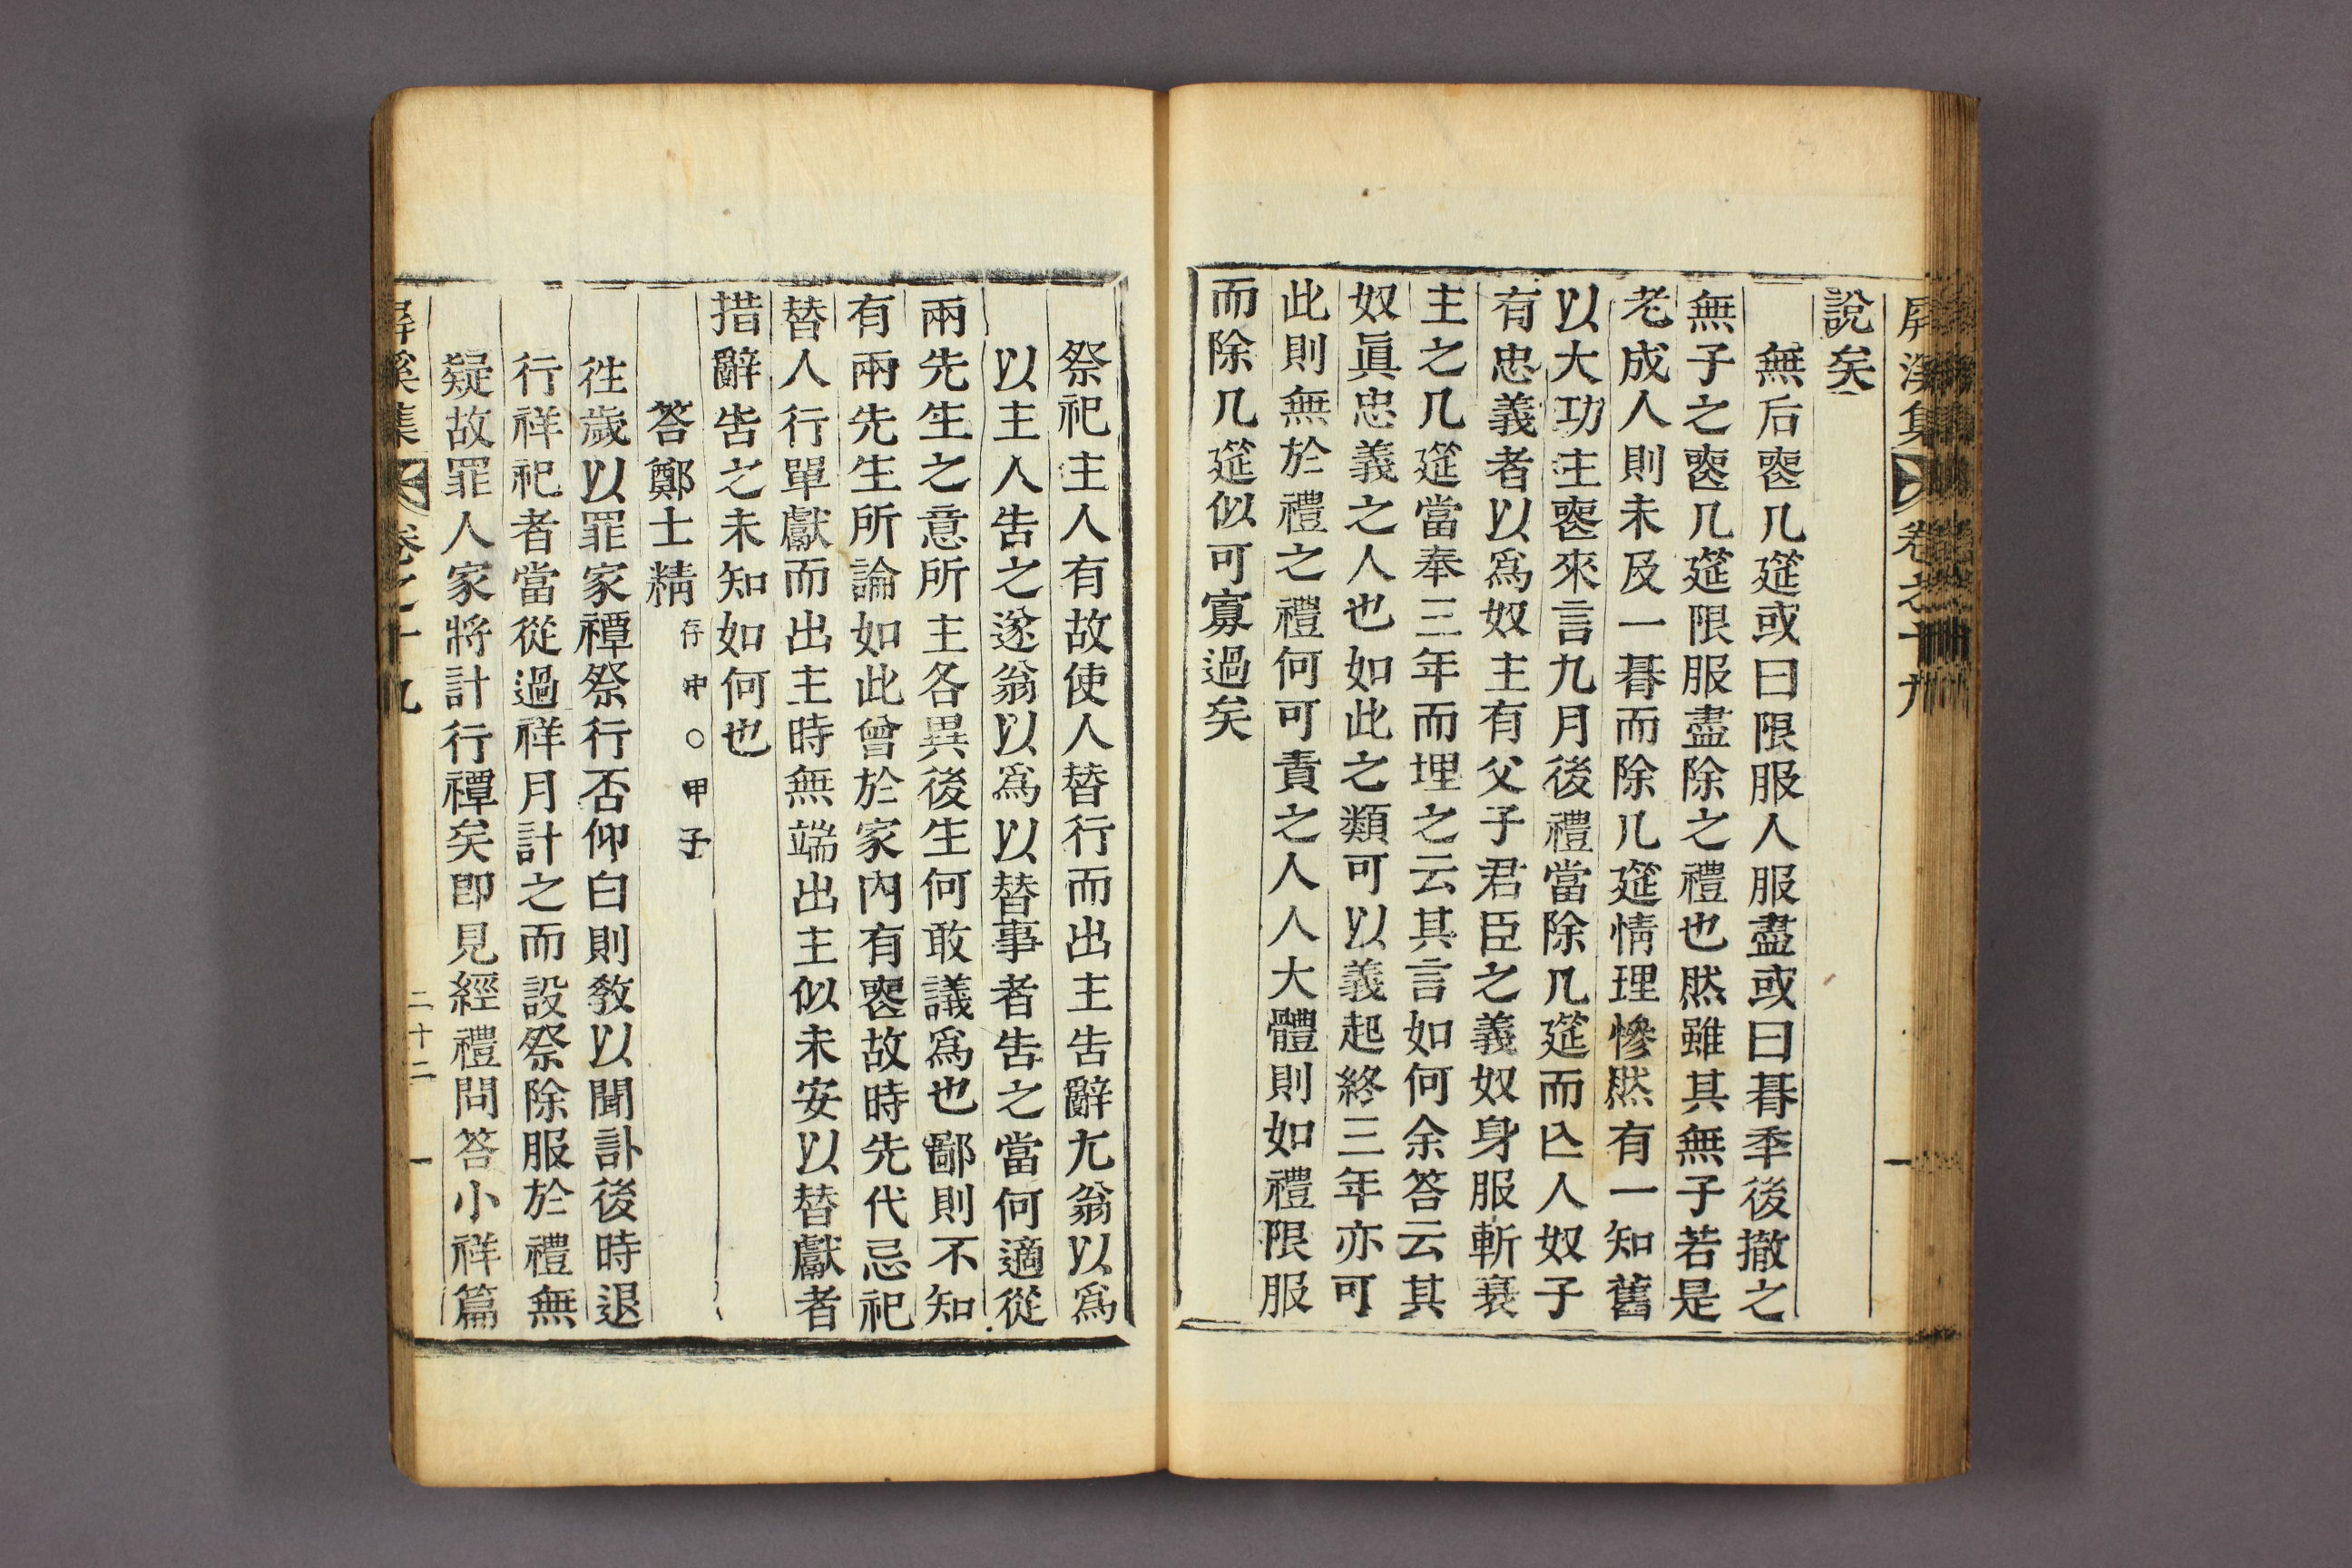 屛溪集 卷之十九
說矣
無后喪几筵或曰限服人服盡或曰朞秊後撤之
無子之喪几筵限服盡除之禮也然雖其無子若是
老成人則未及一朞而除几筵情理慘然有一知舊
以大功主喪來言九月後禮當除几筵而亾人奴子
有忠義者以爲奴主有父子君臣之義奴身服斬衰
主之几筵當奉三年而埋之云其言如何余答云其
奴眞忠義之人也如此之類可以義起終三年亦可
此則無於禮之禮何可責之人人大體則如禮限服
而除几筵似可寡過矣
祭祀主人有故使人替行而出主告辭尤翁以爲
以主人告之遂翁以爲以替事者告之當何適從
兩先生之意所主各異後生何敢議爲也鄙則不知
有兩先生所論如此曾於家內有喪故時先代忌祀
替人行單獻而出主時無端出主似未安以替獻者
措辭告之未知如何也
答鄭士精 存中○甲子
徃歲以罪家禫祭行否仰白則敎以聞訃後時退
行祥祀者當從過祥月計之而設祭除服於禮無
疑故罪人家將計行禫矣卽見經禮問答小祥篇
屛溪集 卷之十九 二十二